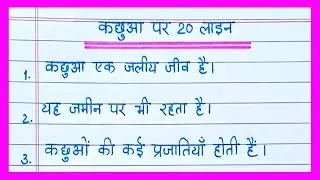 कछुआ पर 20 लाइन
1. कछुआ एक जलीय जीव है।
2. यह जमीन पर भी रहता है।
3. कछुओं की कई प्रजातियाँ होती हैं।